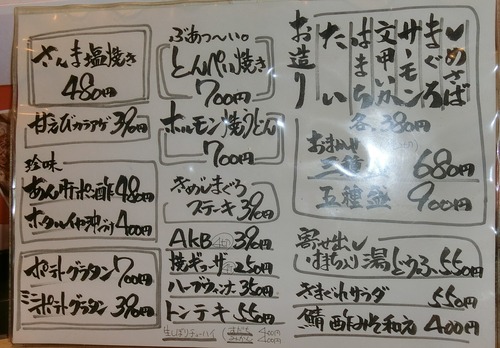 お造り
♥めさば
まぐろ
サーモン
文甲いか
はまち
たい
各380円
おまかせ
三種盛 680円
五種盛 900円
寄せ出し
餅入り湯どうふ 550円
きまぐれサラダ 550円
鯖酢みそ和え 400円
ぶあっ〜い。
とんぺい焼き
700円
ホルモン焼うどん
700円
きめじまぐろ
ステーキ 390円
AKB 390円
焼ギョーザ 250円
ハーブウィンナ 350円
トンテキ 550円
生しぼりチューハイ
400円
400円
さんま塩焼き
480円
甘えびカラアゲ 390円
珍味
あん肝ポン酢 480円
ホタルイカ沖づけ 400円
ポテトグラタン 700円
ミニポテトグラタン 390円